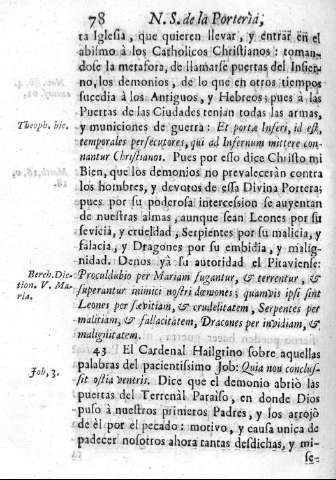 78 N. S. de la Porterìa,
ta Iglesia, que quieren llevar, y entrar en el
abismo à los Catholicos Christianos: toman-
dose la metafora, de llamarse puertas del Infier-
no, los demonios, de lo que en otros tiempos
sucedia à los Antiguos, y Hebreos; pues à las
Puertas de las Ciudades tenian todas las armas,
Theoph. hic.
y municiones de guerra: Et portæ Inferi, id est,
temporales persecutores, qui ad Infernum mittere con-
nantur Christianos. Pues por esso dice Christo mi
Bien, que los demonios no prevaleceràn contra
los hombres, y devotos de essa Divina Portera;
pues por su poderosa intercession se auyentan
de nuestras almas, aunque sean Leones por su
sevicia, y crueldad, Serpientes por su malicia, y
falacia, y Dragones por su embidia, y malig-
nidad. Denos yà su autoridad el Pitaviense:
Berch. Dic-
tion. V. Ma-
ria.
Proculdubio per Mariam fugantur, & terrentur, &
superantur inimici nostri dæmones; quamvis ipsi sint
Leones per sævitiam, & crudelitatem, Serpentes per
malitiam, & fallacitatem, Dracones per invidiam, &
malignitatem.
43 El Cardenal Hailgrino sobre aquellas
Job, 3.
palabras del pacientissimo Job: Quia non conclus-
sit ostia ventris. Dice que el demonio abriò las
puertas del Terrenàl Paraìso, en donde Dios
puso à nuestros primeros Padres, y los arrojò
de èl por el pecado: motivo, y causa unica de
padecer nosotros ahora tantas desdichas, y mi-
se-